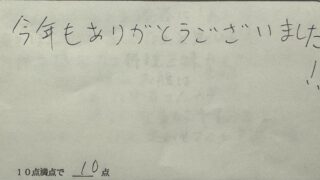 今年もありがとうございました
!!
10点満点で 10 点